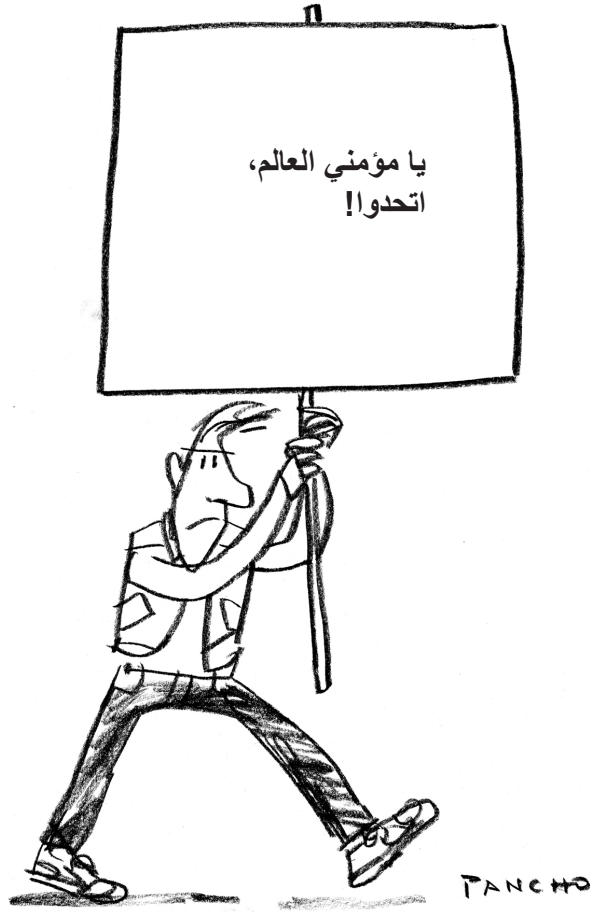 يا مؤمني العالم،
اتحدوا!
PANCHO